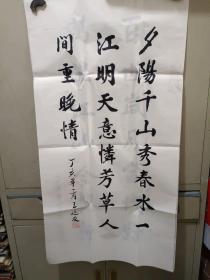 夕陽千山秀春水一
江明天意憐芳草人
間重晚情
丁亥年